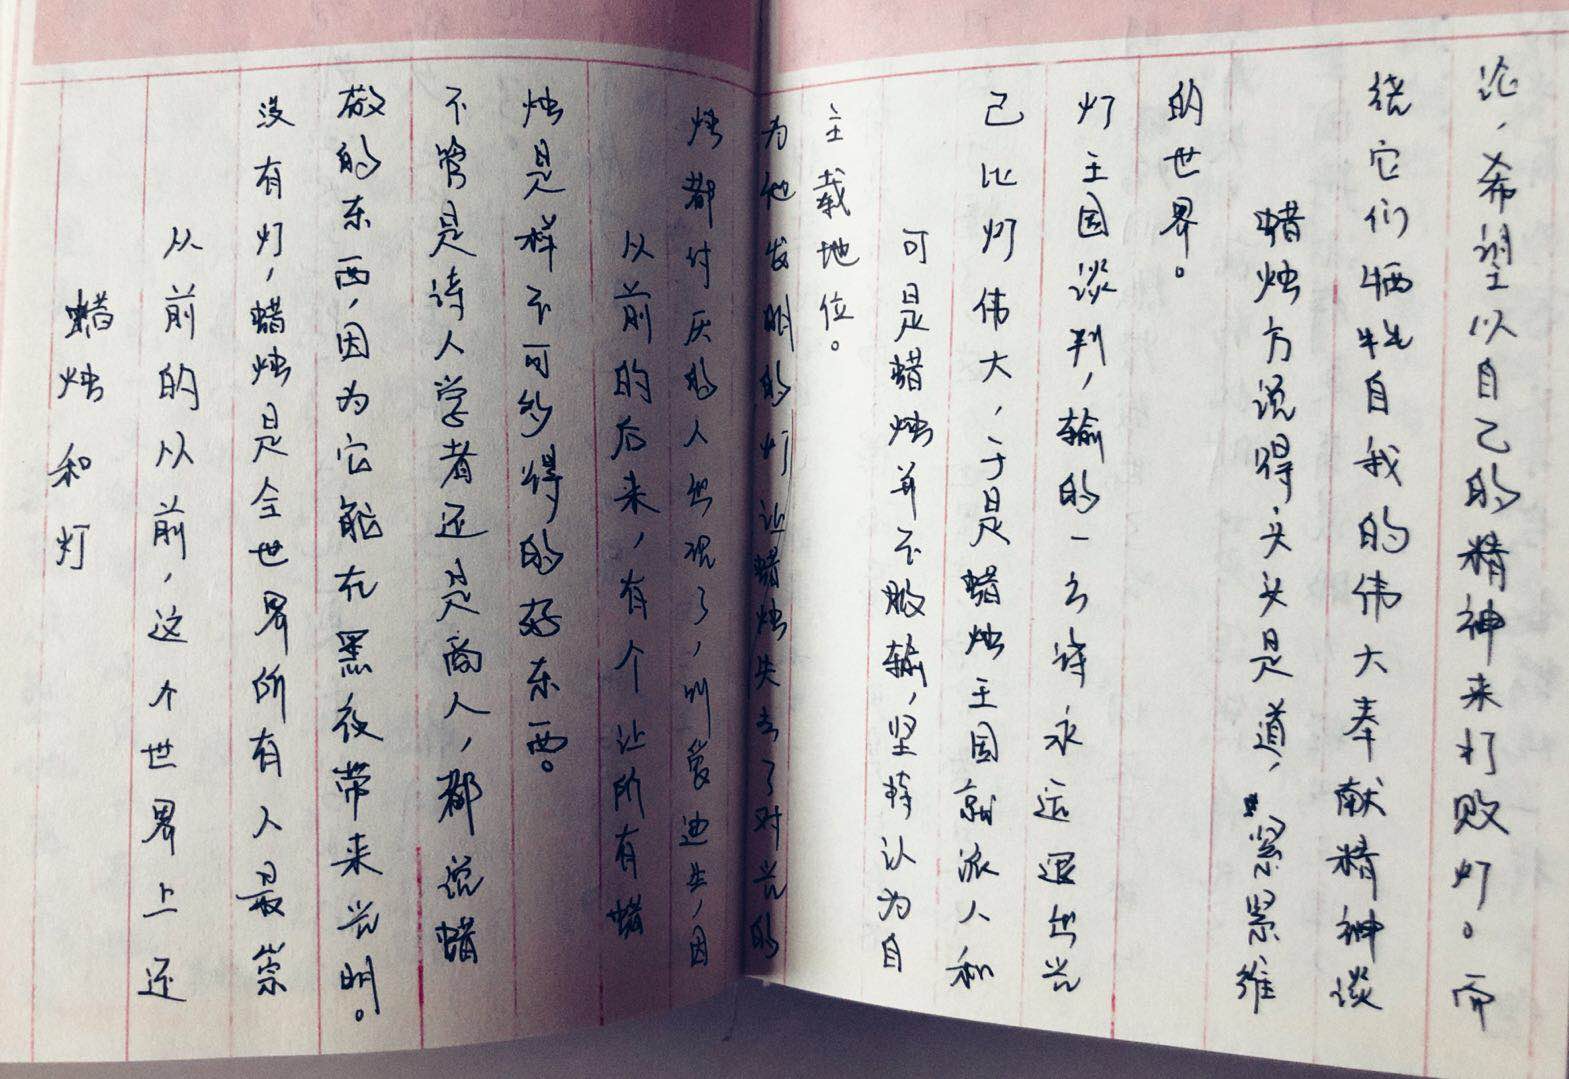 蜡烛和灯
从前的从前，这个世界上还
没有灯，蜡烛是全世界所有人最崇
敬的东西，因为它能在黑夜带来光明。
不管是诗人学者还是商人，都说蜡
烛是样不可多得的好东西。
从前的后来，有个让所有蜡
烛都讨厌的人出现了，叫爱迪生，因
为他发明的灯让蜡烛失去了对光的
主载地位。
可是蜡烛并不服输，坚持认为自
己比灯伟大，于是蜡烛王国就派人和
灯王国谈判，输的一方将永远退出光
的世界。
蜡烛方说得头头是道，紧紧维
绕它们牺牲自我的伟大奉献精神谈
论，希望以自己的精神来打败灯。而